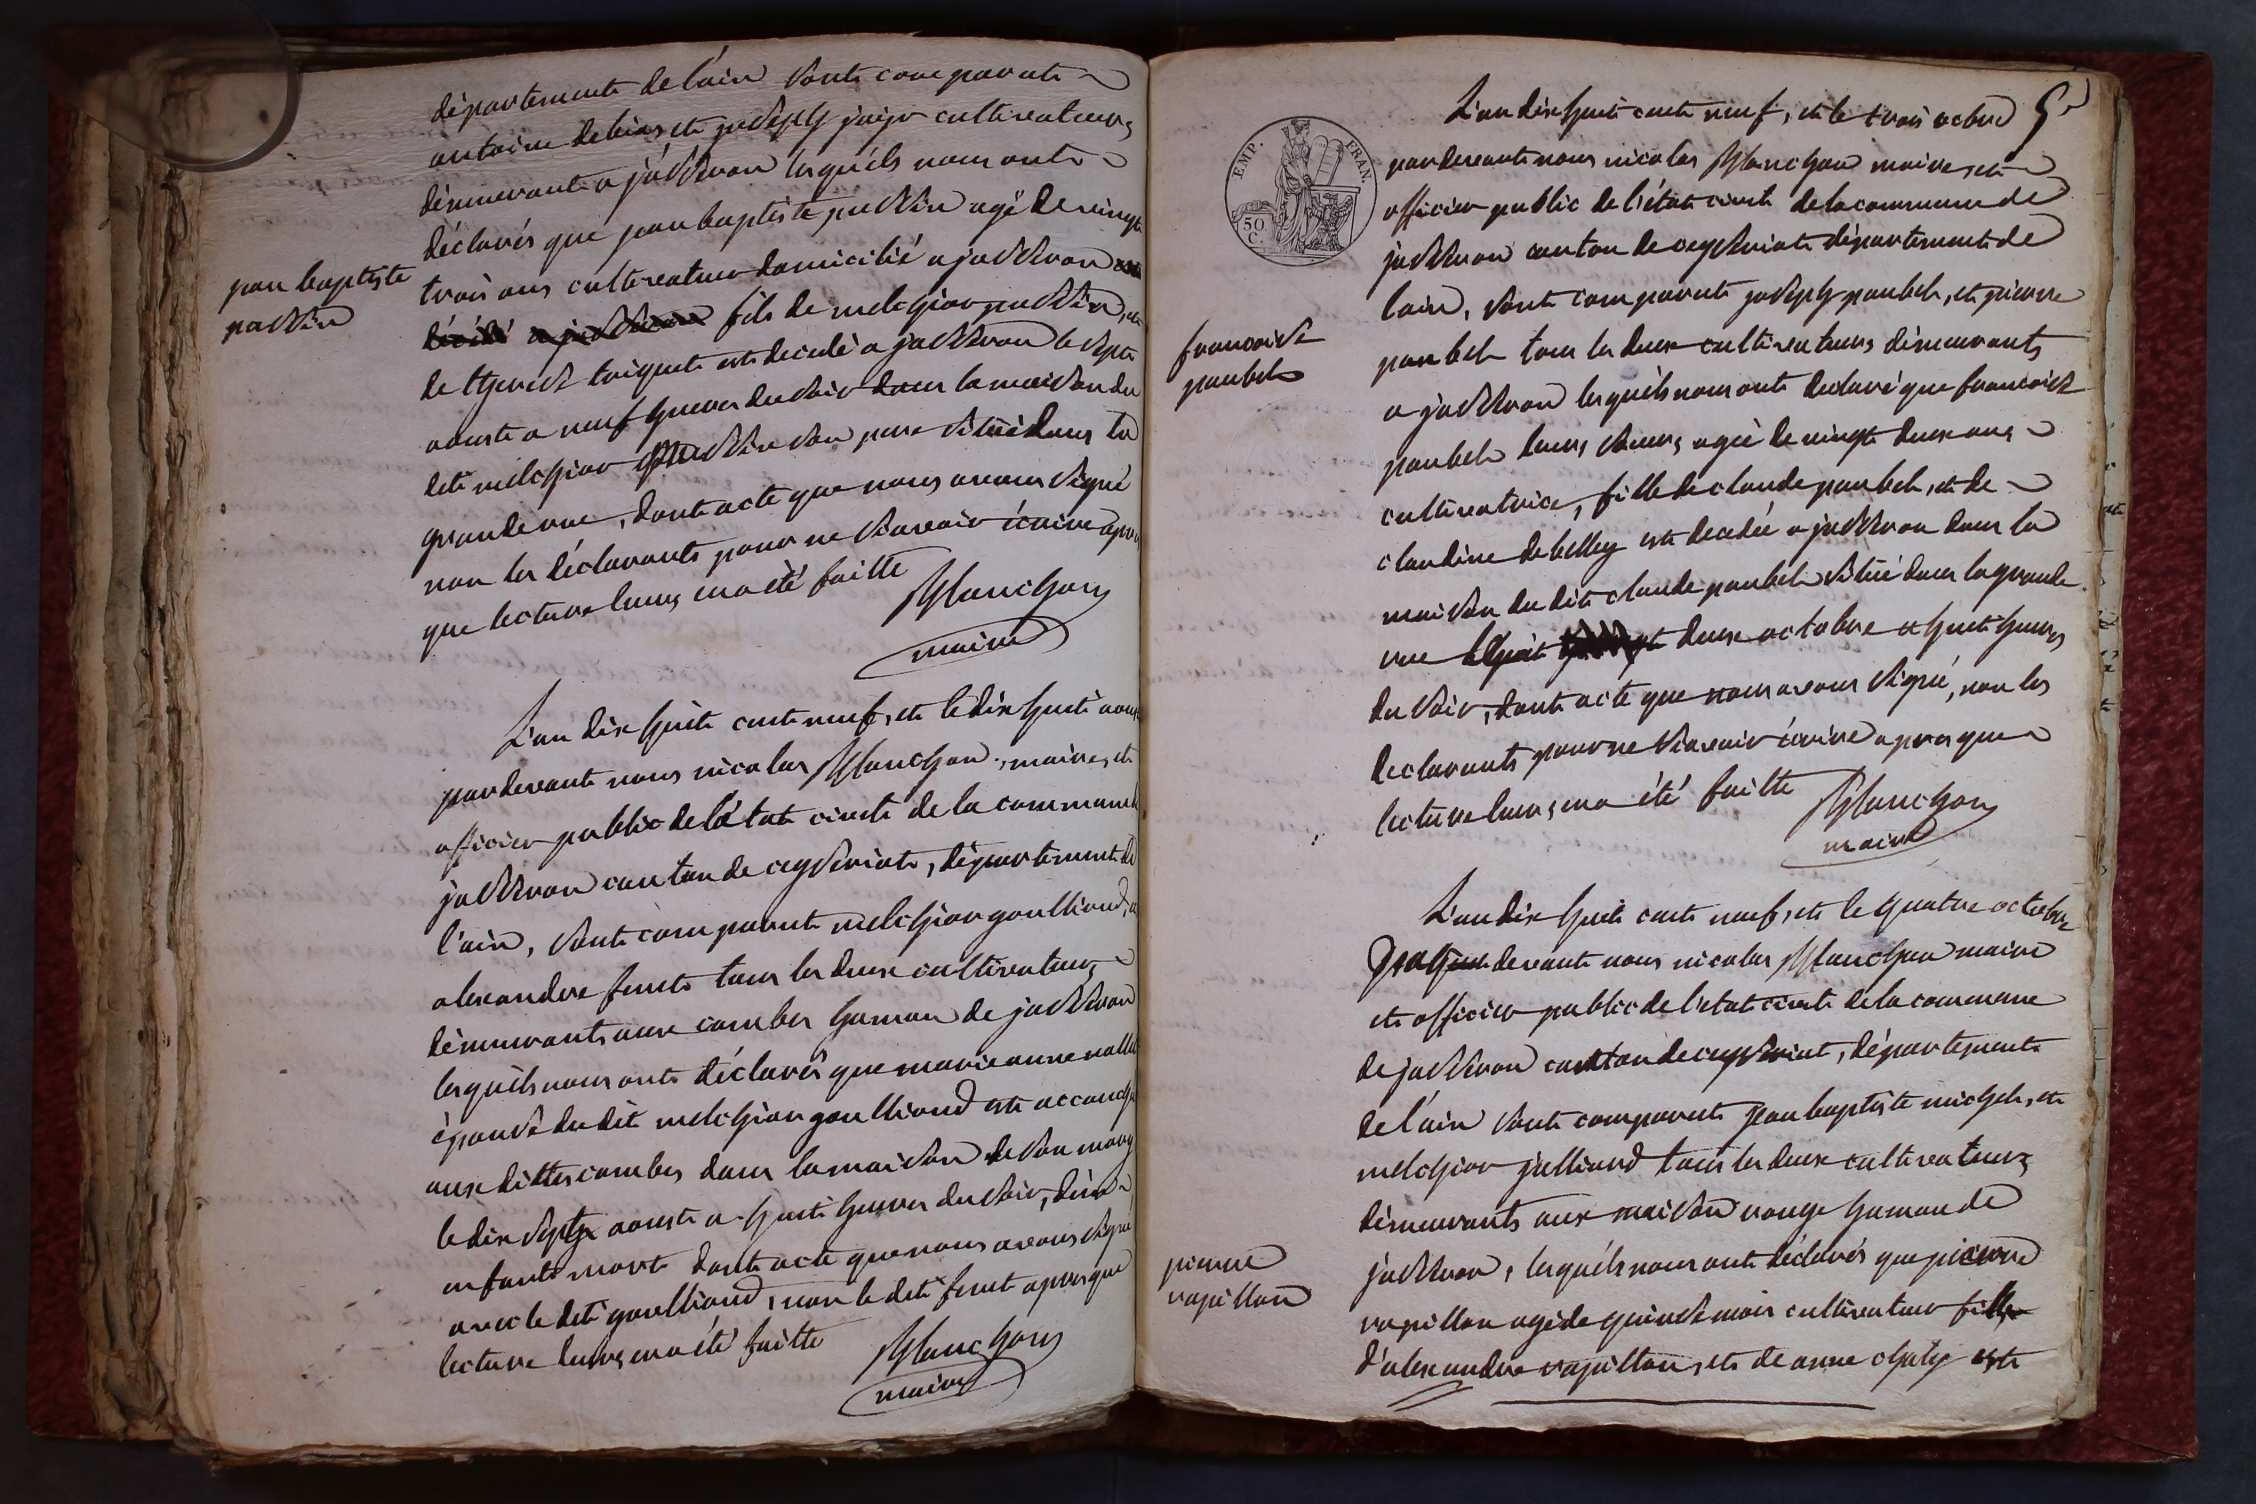 département de l'ain sont comparut
antoine debias et joseph jaijr cultivateurs
démeurant a jasseron lesquels nous ont
déclarés que jean baptiste possin agé de vingt
jean baptiste
possin
trois ans cultivateur domicilié a jasseron
décédé a jasseron fils de melchior possin, et
de therese triquet est decedé a jasseron le sept
aoust a neuf heures du soir dans la maison du
dit melchior possin son pere situé dans la
grande rue, dont acte que nous avons signé
non les déclarants pour ne savoir écrire apres
que lecture leurs en a été faitte
Blanchon
maire
L'an dix huit cent neuf, et le dix huit aoust
pardevant nous nicolas Blanchon, maire, et
officier public de l'état civil de la commune de
jasseron canton de ceyseriat, département de
l'ain, sont comparut melchior goulliond, et
alexandre feret tous les deux cultivateurs
démeurants aux combes hamau de jasseron
lesquels nous ont déclarés que marie anne
épouse du dit melchior goulliond est accouché
aux dittes combes dans la maison de son mary
le dix sept aoust a huit heures du soir, d'un
enfant mort dont acte que nous avons signé
avec le dit goulliond, non le dit feret apres que
lecture leurs en a été faitte
Blanchon
maire
5
L'an dix huit cent neuf, et le trois octobre
EMP. FRAN.
50 C.
pardevant nous nicolas Blanchon maire, et
officier public de l'état civil de la commune de
jasseron canton de ceyseriat département de
lain, sont comparut joseph paubel, et pierre
francoise
paubel
paubel tous les deux cultivateurs démeurants
a jasseron lesquels nous ont declaré que francoise
paubel leurs soeurs agée de vingt deux ans
cultivatrice, fille de claude paubel, et de
claudine debelley est decedée a jasseron dans la
maison du dit claude paubel situé dans la grande
rue deux octobre a huit heures
du soir, dont acte que nous avons signé, non les
declarants pour ne savoir écrire apres que
lecture leurs en a été faitte
Blanchon
maire
L'an dix huit cent neuf, et le quatre octobre
devant nous nicolas Blanchon maire
et officier public de l'etat civil de la commune
de jasseron canton de ceyseriat, département
de l'ain sont comparut jean baptiste michel, et
melchior julliand tous les deux cultivateurs
démeurants aux maison rouge hamau de
jasseron, lesquels nous ont déclarés que pierre
pierre
vapillon
vapillon agé de quinse mois cultivateur fille
d'alexandre vapillon, et de anne chaty est